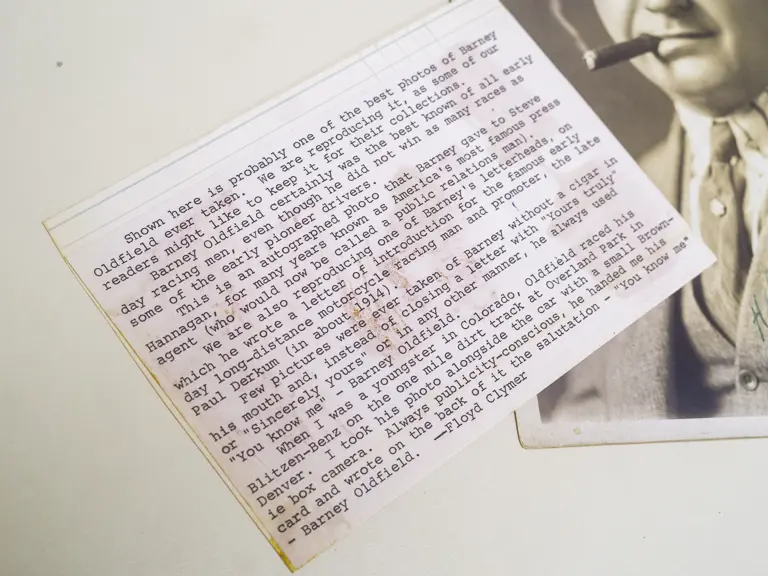 Shown here is probably one of the best photos of Barney
Oldfield ever taken. We are reproducing it, as some of our
readers might like to keep it for their collections.
Barney Oldfield certainly was the best known of all early
day racing men, even though he did not win as many races as
some of the early pioneer drivers.
This is an autographed photo that Barney gave to Steve
Hannagan, for many years known as America's most famous press
agent (who would now be called a public relations man).
We are also reproducing one of Barney's letterheads, on
which he wrote a letter of introduction for the famous early
day long-distance motorcycle racing man and promoter, the late
Paul Derkum (in about 1914).
Few pictures were ever taken of Barney without a cigar in
his mouth and, instead of closing a letter with "Yours truly"
or "Sincerely yours" or in any other manner, he always used
"You know me - Barney Oldfield".
When I was a youngster in Colorado, Oldfield raced his
Blitzen-Benz on the one mile dirt track at Overland Park in
Denver. I took his photo alongside the car with a small Brown-
ie box camera. Always publicity-conscious, he handed me his
card and wrote on the back of it the salutation - "You know me"
- Barney Oldfield. —Floyd Clymer